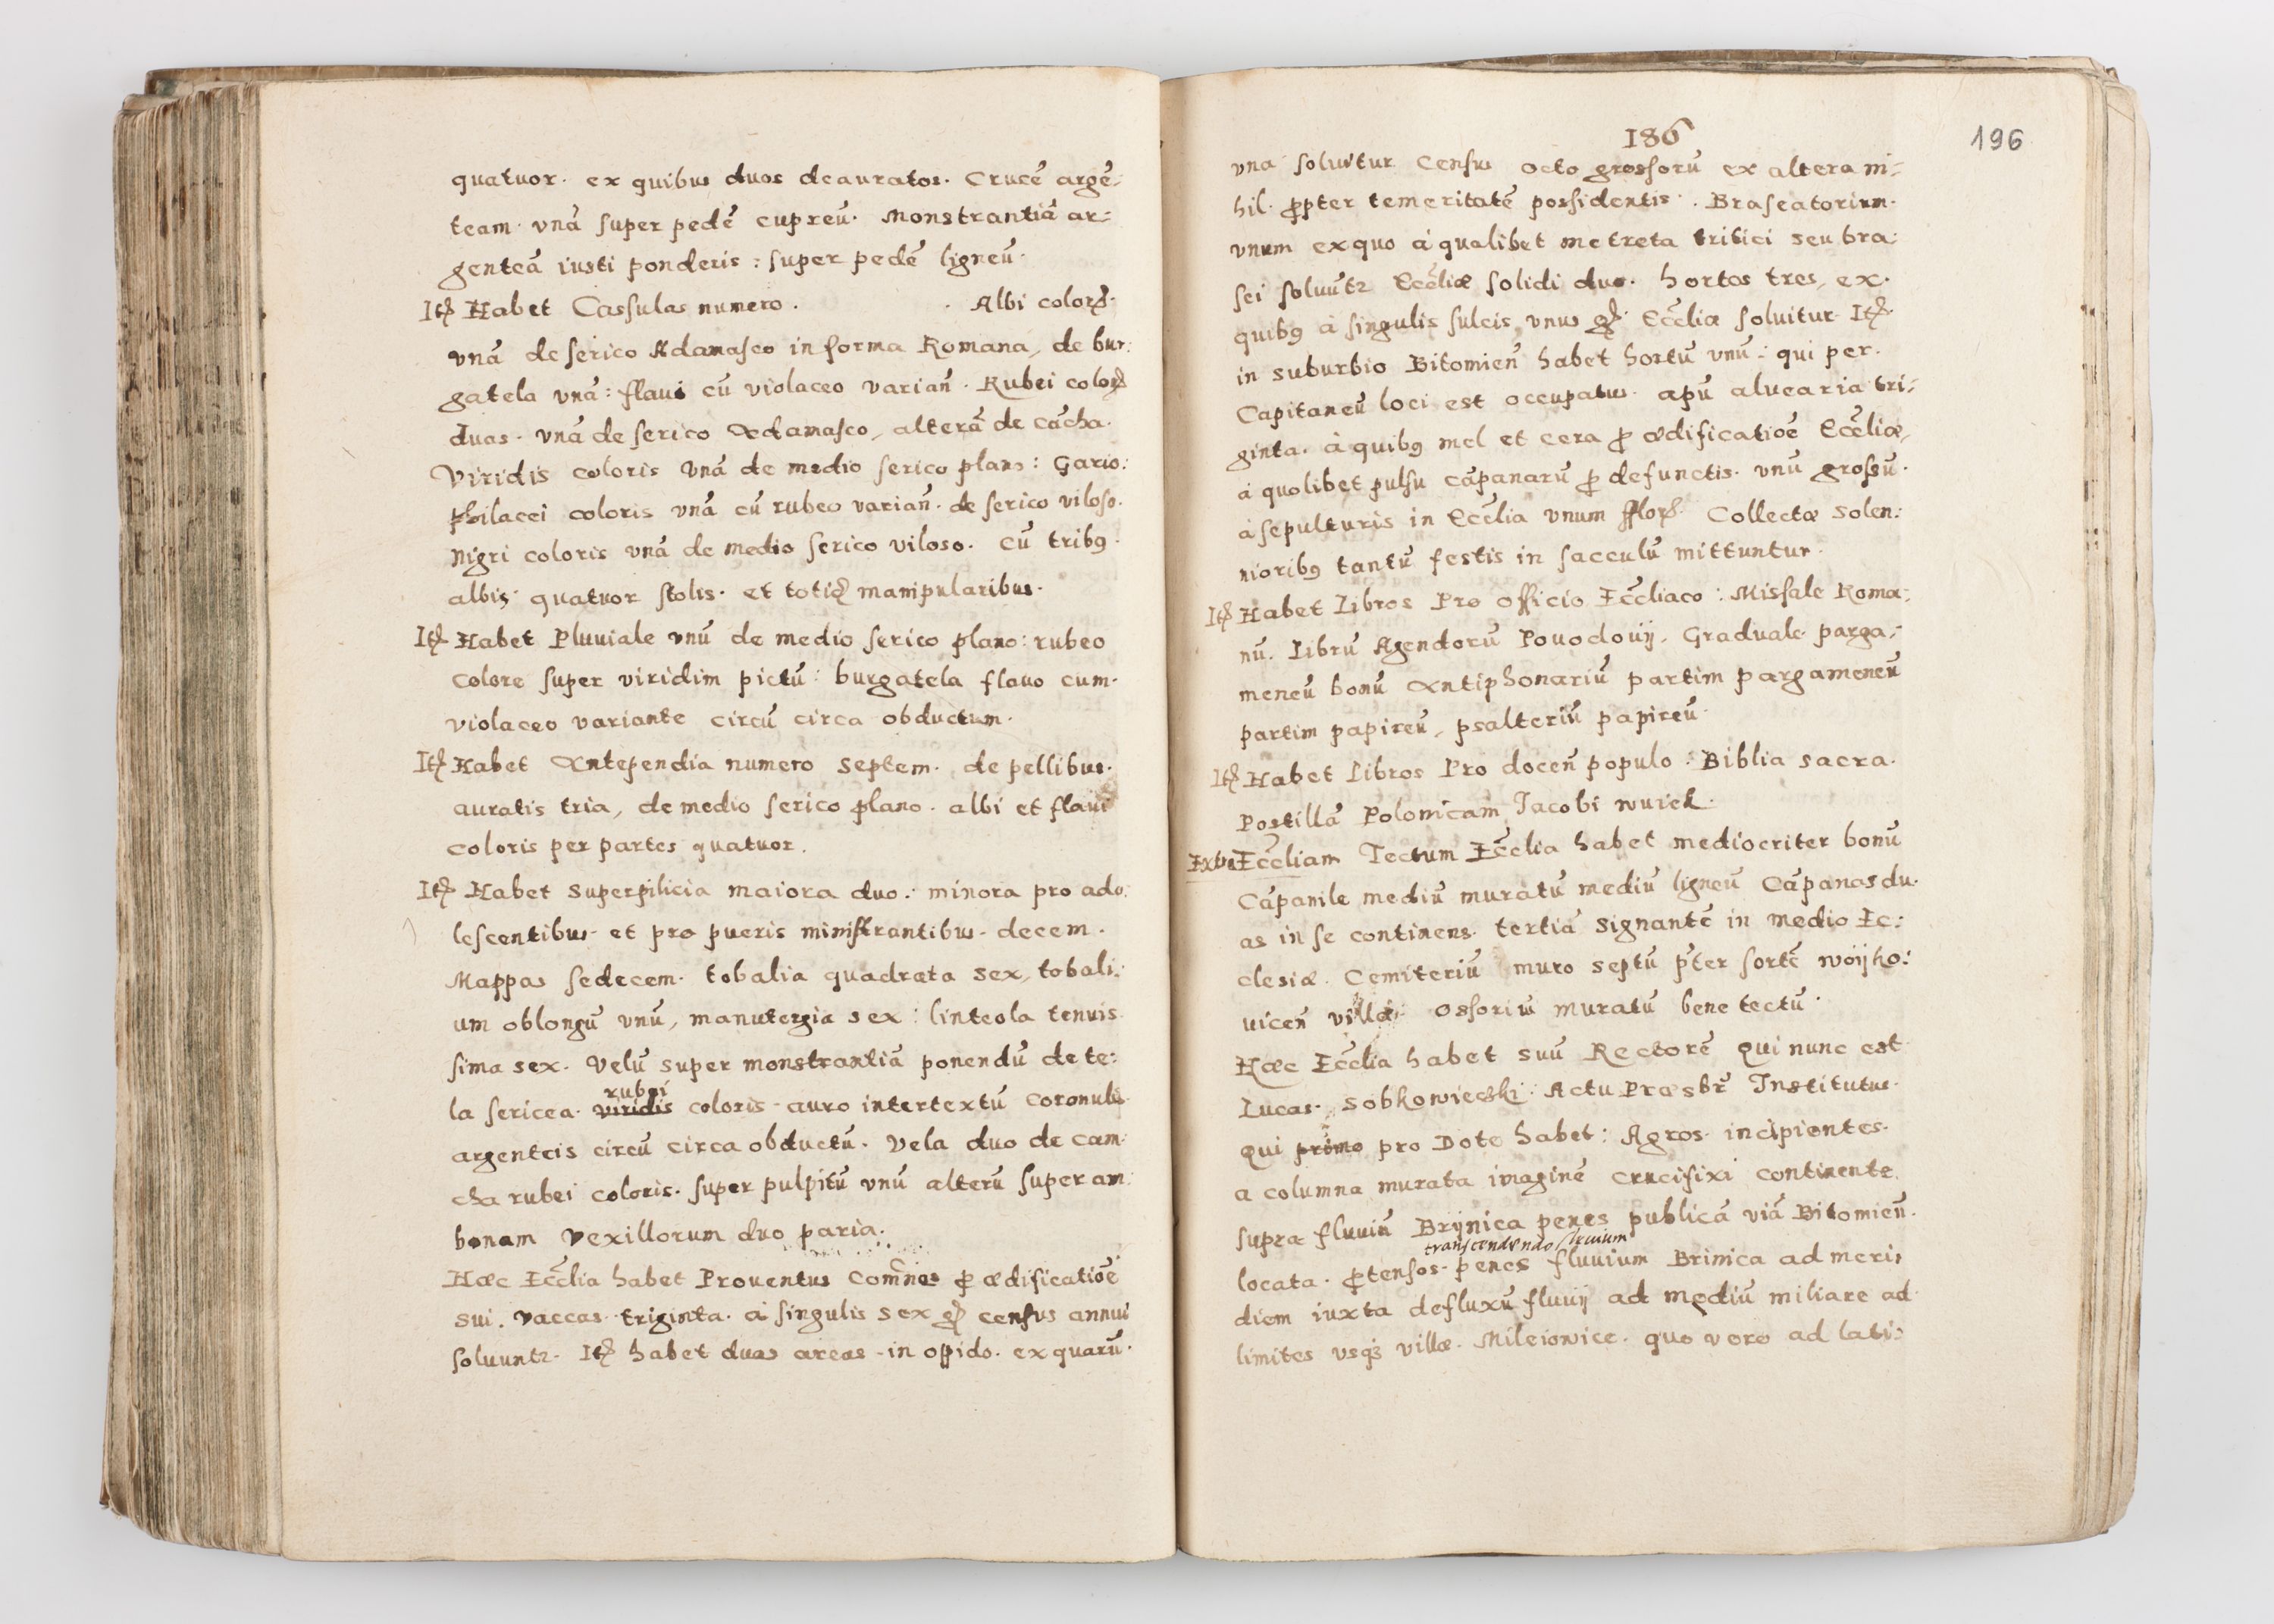 quatuor. ex quibus duos deauratos. Crucē argē-
team. vnā super pedē cupreū. Monstrantiā ar-
genteā iusti ponderis: super pedē ligneū.
Itꝫ Habet Cassulas numero. . Albi colorꝭ.
vnā de serico Adamasco in forma Romana, de bur:
gatela vnā: flaui cū violaceo varian̄. Rubei colorꝭ
duas. vnā de serico Adamasco, alterā de cācha.
Viridis coloris vnā de medio serico plano: Gario:
philacei coloris vnā cū rubeo varian̄. de serico viloso.
Nigri coloris vnā de medio serico viloso. cū tribꝰ.
albis. quatuor stolis. et totiꝫ manipularibus.
Itꝫ Habet Pluuiale vnū de medio serico plano: rubeo
colore super viridim pictū: burgatela flauo cum.
violaceo variante circū circa obductum.
Itꝫ Habet Antependia numero septem. de pellibus.
auratis tria, de medio serico plano. albi et flaui
coloris per partes quatuor.
Itꝫ Habet superpilicia maiora duo: minora pro ado:
lescentibus. et pro pueris ministrantibus. decem.
Mappas sedecem. tobalia quadrata sex, tobali:
um oblongū vnū, manutergia sex: linteola tenuis
sima sex. Velū super monstrantiā ponendū de te:
rubei
la sericea. viridis coloris. auro intertextū coronulis
argenteis circū circa obductū. Vela duo de cam:
cha rubei coloris. super pulpitū vnū alterū super am:
bonam Vexillorum duo paria.
Hæc Eccl̄ia habet Prouentus Com̄nes ꝓ ædificatiōe
sui. vaccas. triginta. à singulis sex gꝭ census annui
soluuntꝛ. Itꝫ habet duas areas. in oppido. ex quarū.
186
196
vna soluitur Census octo grossorū ex altera ni-
hil. ꝓpter temeritatē possidentis. Braseatorium.
vnum ex quo à qualibet metreta tritici seu bra:
sei soluūtꝛ Eccl̄iæ solidi duo. hortos tres, ex.
quibꝰ à singulis sulcis vnus gꝭ. Eccl̄iæ soluitur Itꝫ.
in suburbio Bitomien̄ habet hortū vnū: qui per.
Capitaneū loci est occupatus. apū aluearia tri-
ginta. à quibꝰ mel et cera ꝓ ædificatiōe Eccl̄iæ,
à quolibet pulsu cāpanarū ꝓ defunctis. vnū grossū.
à sepulturis in Eccl̄ia vnum fflorꝭ. Collectæ solen:
nioribꝰ tantū festis in sacculū mittuntur.
Itꝫ Habet Libros Pro officio Eccl̄iaco: Missale Roma:
nū. Librū Agendorū Pouodouij, Graduale parga-
meneū bonū Antiphonariū partim pargameneū
partim papireū, psalteriū papireū.
Itꝫ Habet Libros Pro docen̄ populo: Biblia sacra.
Postillā Polonicam Jacobi wuiek.
Extra Eccl̄iam Tectum Eccl̄ia habet mediocriter bonū
Cāpanile mediū muratū mediū ligneū Cāpanas du.
as in se continens. tertiā signantē in medio Ec:
clesiæ. Cemiteriū muro septū p̄ter sortē woijko:
uicen̄ villæ. Ossoriū muratū bene tectū.
Hæc Eccl̄ia habet suū Rectorē qui nunc est
Lucas. Sobkowieczki. Actu Præsbr̄ Institutus.
Qui primo pro Dote habet: Agros. incipientes.
a columna murata imaginē crucifixi continente.
supra fluuiū Brijnica penes publicā viā Bitomien̄.
transcendendo fluuium
locata. ꝓtensos. penes fluuium Brinica ad meri,
diem iuxta defluxū fluuij ad mediū miliare ad
limites vsqꝫ villæ. Mileiowice. quo vero ad lati: